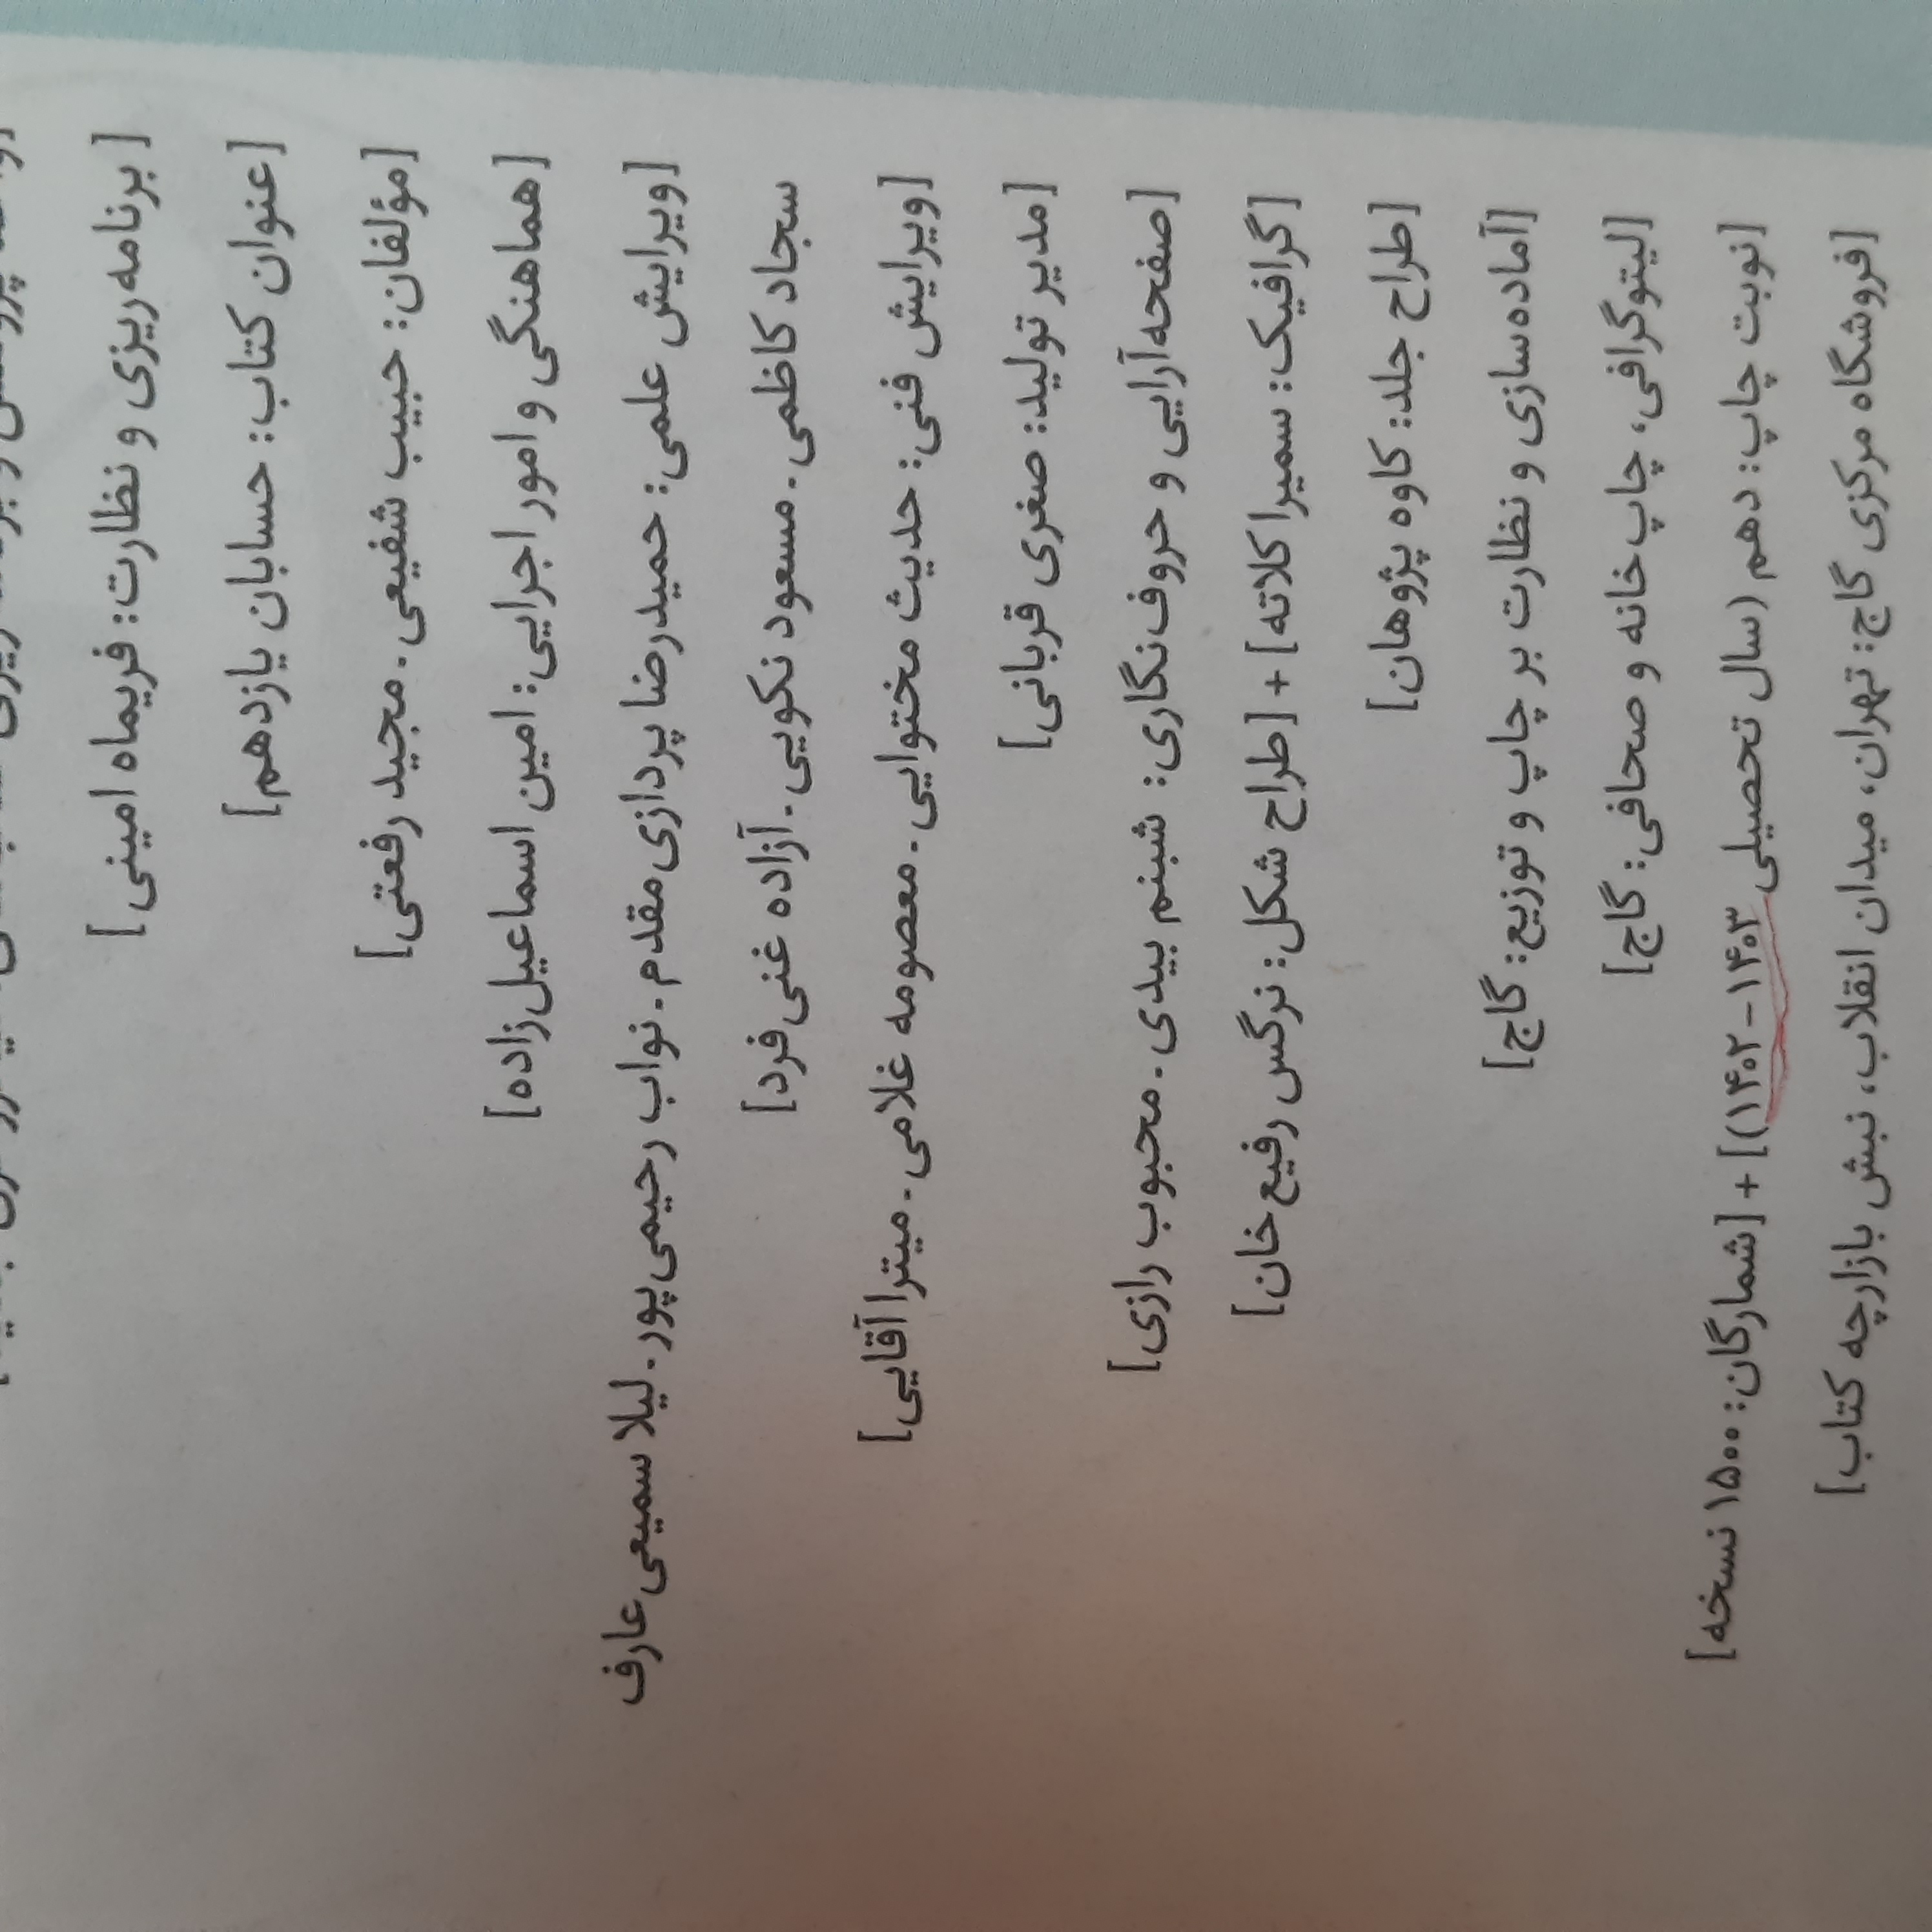 [برنامه‌ریزی و نظارت: فریماه امینی]
[عنوان کتاب: حسابان یازدهم]
[مؤلفان: حبیب شفیعی. مجید رفعتی]
[هماهنگی و امور اجرایی: امین اسماعیل‌زاده]
[ویرایش علمی: حمیدرضا پردازی‌مقدم. نواب رحیمی‌پور. لیلا سمیعی‌عارف
سجاد کاظمی. مسعود نکویی. آزاده غنی‌فرد]
[ویرایش فنی: حدیث مختوایی. معصومه غلامی. میترا آقایی]
[مدیر تولید: صغری قربانی]
[صفحه‌آرایی و حروف‌نگاری: شبنم بیدی. محبوب رازی]
[گرافیک: سمیرا کلاته] + [طراح شکل: نرگس رفیع‌خان]
[طراح جلد: کاوه پژوهان]
[آماده‌سازی و نظارت بر چاپ و توزیع: گاج]
[لیتوگرافی، چاپ‌خانه و صحافی: گاج]
[نوبت چاپ: دهم (سال تحصیلی ۱۴۰۳-۱۴۰۲)] + [شمارگان: ۱۵۰۰ نسخه]
[فروشگاه مرکزی گاج: تهران، میدان انقلاب، نبش بازارچه کتاب]